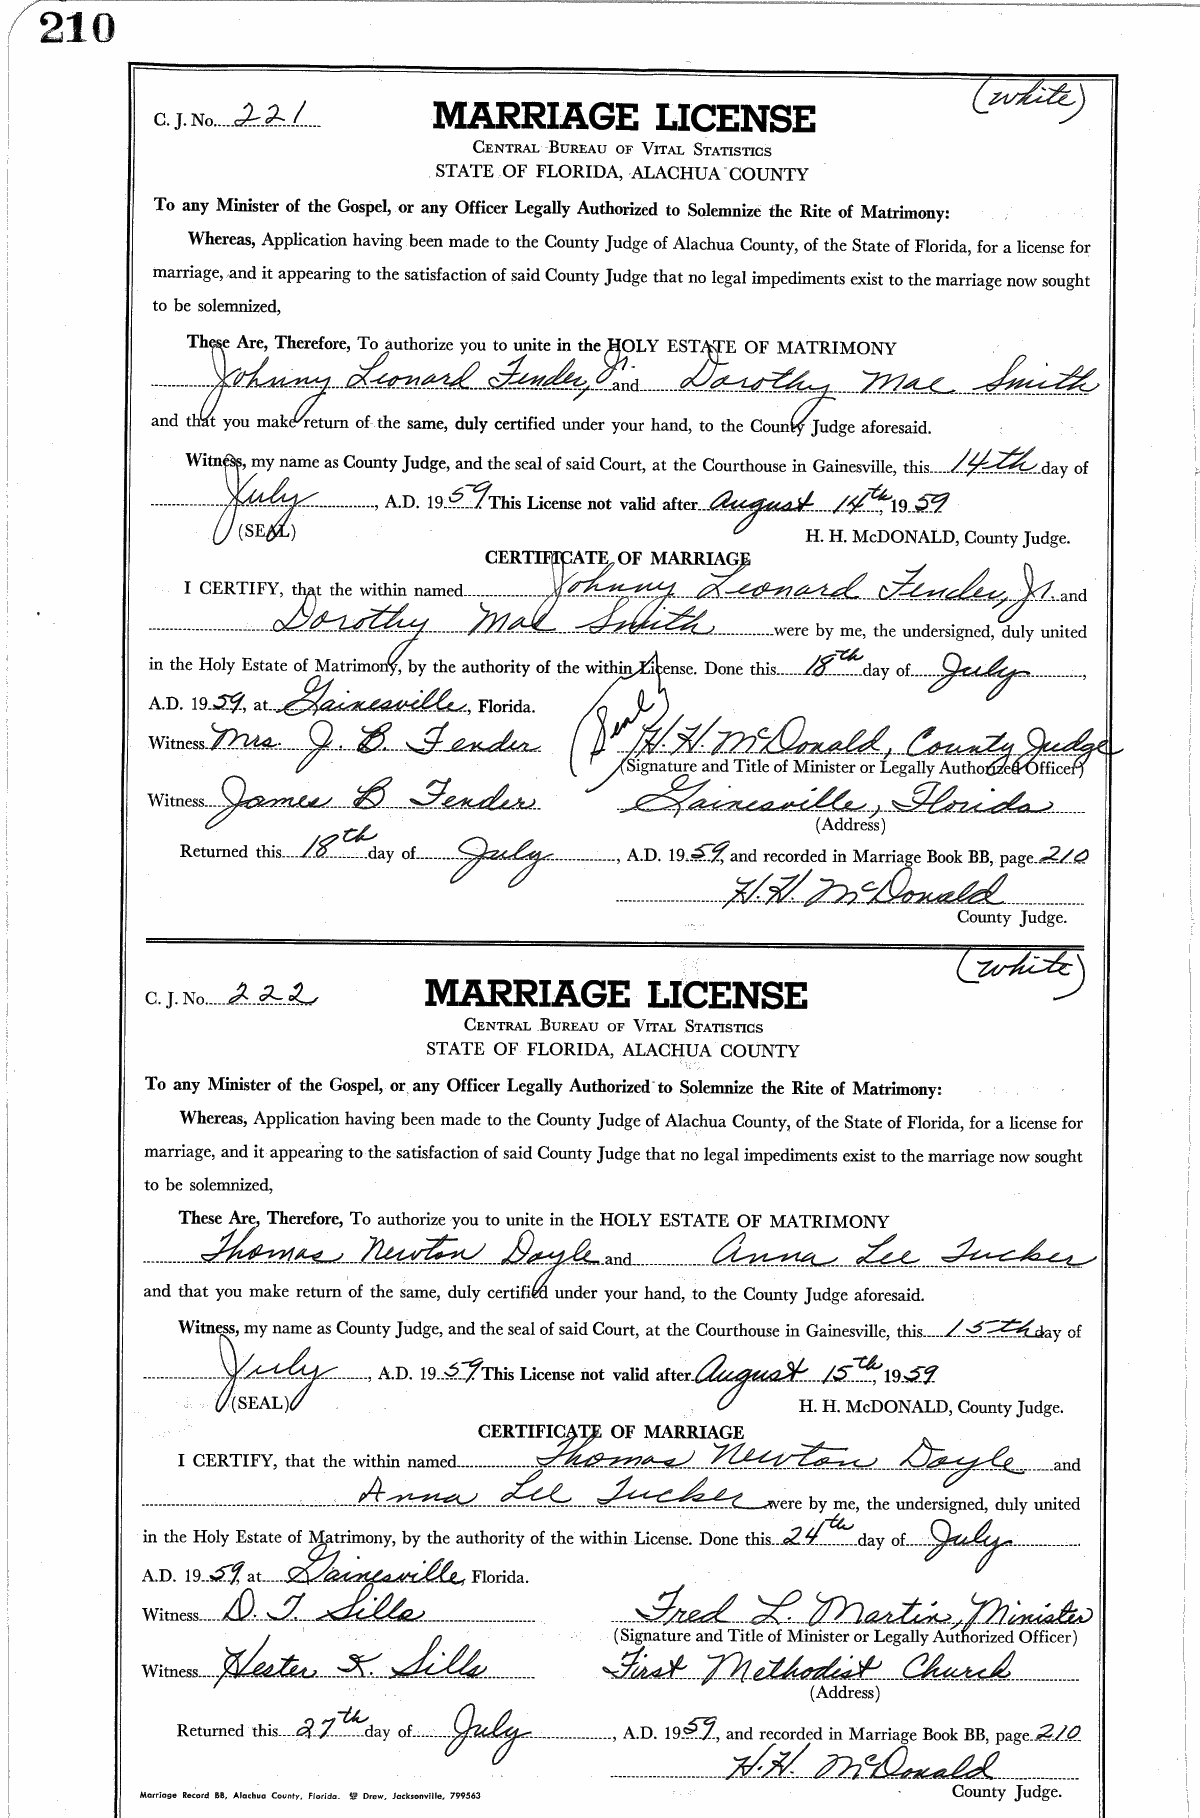 210
(white)
C. J. No. 221
MARRIAGE LICENSE
CENTRAL BUREAU OF VITAL STATISTICS
STATE OF FLORIDA, ALACHUA COUNTY
To any Minister of the Gospel, or any Officer Legally Authorized to Solemnize the Rite of Matrimony:
Whereas, Application having been made to the County Judge of Alachua County, of the State of Florida, for a license for
marriage, and it appearing to the satisfaction of said County Judge that no legal impediments exist to the marriage now sought
to be solemnized,
These Are, Therefore, To authorize you to unite in the HOLY ESTATE OF MATRIMONY
Johnny Leonard Fender, Jr. and Dorothy Mae Smith
and that you make return of the same, duly certified under your hand, to the County Judge aforesaid.
Witness, my name as County Judge, and the seal of said Court, at the Courthouse in Gainesville, this 14th day of
July, A.D. 1959. This License not valid after August 14th, 1959
(SEAL) H. H. McDONALD, County Judge.
CERTIFICATE OF MARRIAGE
I CERTIFY, that the within named Johnny Leonard Fender, Jr. and
Dorothy Mae Smith were by me, the undersigned, duly united
in the Holy Estate of Matrimony, by the authority of the within License. Done this 18th day of July,
A.D. 1959, at Gainesville, Florida.
Witness Mrs. J. B. Fender (Seal) H. H. McDonald, County Judge
(Signature and Title of Minister or Legally Authorized Officer)
Witness James B Fender Gainesville, Florida
(Address)
Returned this 18th day of July, A.D. 1959, and recorded in Marriage Book BB, page 210
H. H. McDonald
County Judge.
(white)
C. J. No. 222
MARRIAGE LICENSE
CENTRAL BUREAU OF VITAL STATISTICS
STATE OF FLORIDA, ALACHUA COUNTY
To any Minister of the Gospel, or any Officer Legally Authorized to Solemnize the Rite of Matrimony:
Whereas, Application having been made to the County Judge of Alachua County, of the State of Florida, for a license for
marriage, and it appearing to the satisfaction of said County Judge that no legal impediments exist to the marriage now sought
to be solemnized,
These Are, Therefore, To authorize you to unite in the HOLY ESTATE OF MATRIMONY
Thomas Newton Doyle and Anna Lee Tucker
and that you make return of the same, duly certified under your hand, to the County Judge aforesaid.
Witness, my name as County Judge, and the seal of said Court, at the Courthouse in Gainesville, this 15th day of
July, A.D. 1959. This License not valid after August 15th, 1959
(SEAL) H. H. McDONALD, County Judge.
CERTIFICATE OF MARRIAGE
I CERTIFY, that the within named Thomas Newton Doyle and
Anna Lee Tucker were by me, the undersigned, duly united
in the Holy Estate of Matrimony, by the authority of the within License. Done this 24th day of July
A.D. 1959, at Gainesville, Florida.
Witness D. T. Sills Fred L. Martin, Minister
(Signature and Title of Minister or Legally Authorized Officer)
Witness Hester K. Sills First Methodist Church
(Address)
Returned this 27th day of July, A.D. 1959, and recorded in Marriage Book BB, page 210
H. H. McDonald
County Judge.
Marriage Record BB, Alachua County, Florida. Drew, Jacksonville, 799563